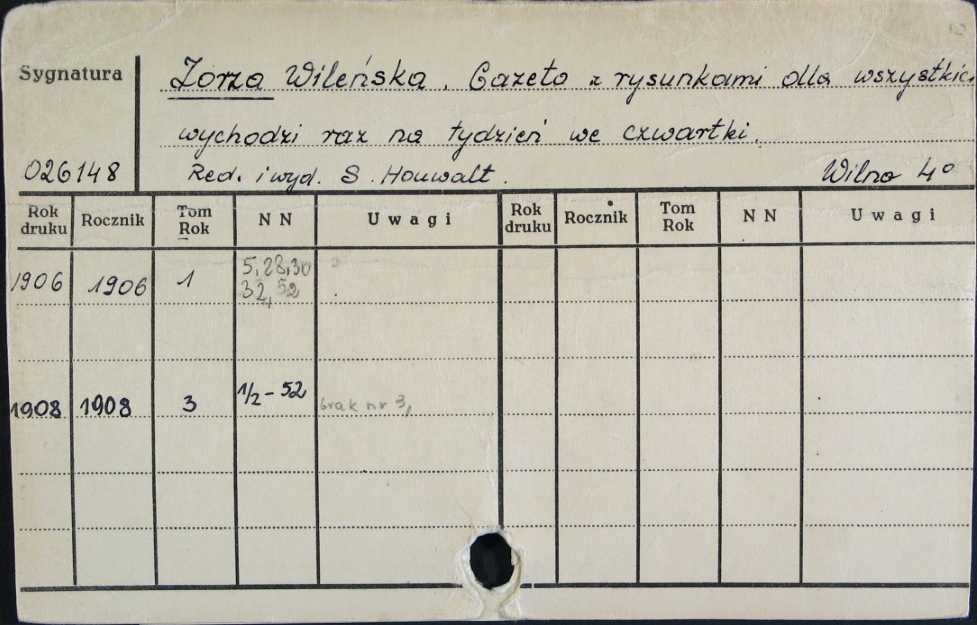 Sygnatura
Zorza Wileńska. Gazeta z rysunkami dla wszystkich
wychodzi raz na tydzień we czwartki.
026148
Red. i wyd. S. Houwalt.
Wilno 4°
Rok druku Rocznik Tom Rok N N Uwagi Rok druku Rocznik Tom Rok N N Uwagi
1906 1906 1 5, 28, 30
32, 52
1908 1908 3 1/2 - 52 brak nr 3,